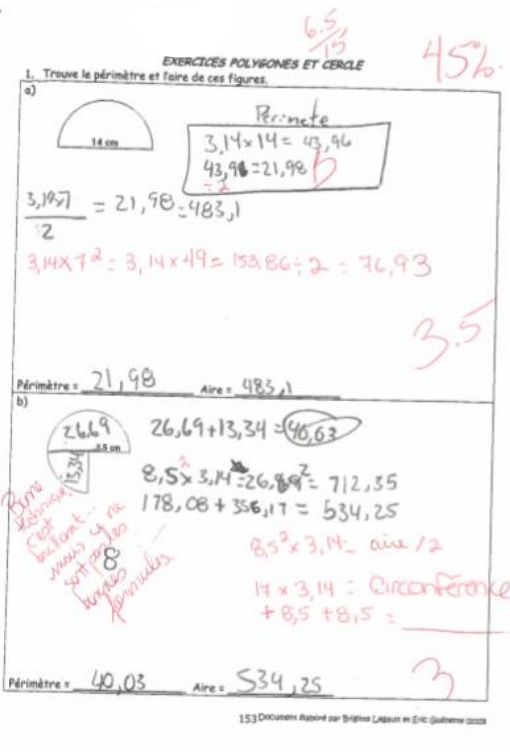 6.5
15
45%
EXERCICES POLYGONES ET CERCLE
1. Trouve le périmètre et l'aire de ces figures.
a)
14 cm
Périmete
3,14x14 = 43,96
43,96 = 21,98
÷2
= 21,98 = 483,1
2
3,14 x 7² = 3,14 x 49 = 153,86 ÷ 2 = 76,93
3.5
Périmètre = 21,98 Aire = 483,1
b)
26,69
8.5 cm
13,34
26,69+13,34 = 40,63
8,5² x 3,14 = 26,69² = 712,35
178,08 + 356,17 = 534,25
Bonne
technique
c'est
mais ce ne
sont pas les
bonnes
formules.
8
8,5² x 3,14 = aire /2
17 x 3,14 = Circonférence
+ 8,5 + 8,5 =
3
Périmètre = 40,03 Aire = 534,25
153 Document élaboré par Brigitte Legault et Éric